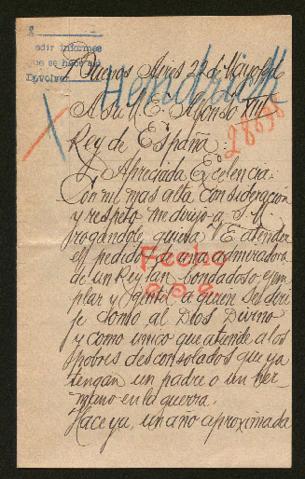 Pedir informes
que se hace así
Devolver
Buenos Aires 22 de Mayo 916
Hendrich
A su M. E. Alfonso XIII
28698
Rey de España:
Apreciada Excelencia:
Con mi mas alta consideración
y respeto me dirijo a S. M.
rogandole quiera V E atender
el pedido de una admiradora
Fecho
de un Rey tan bondadoso ejem
plar y a quien se diri
je como al Dios Divino
y como unico que atiende a los
pobres desconsolados que ya
tengan un padre o un her
mano en la guerra.
Hace ya, un año aproximada